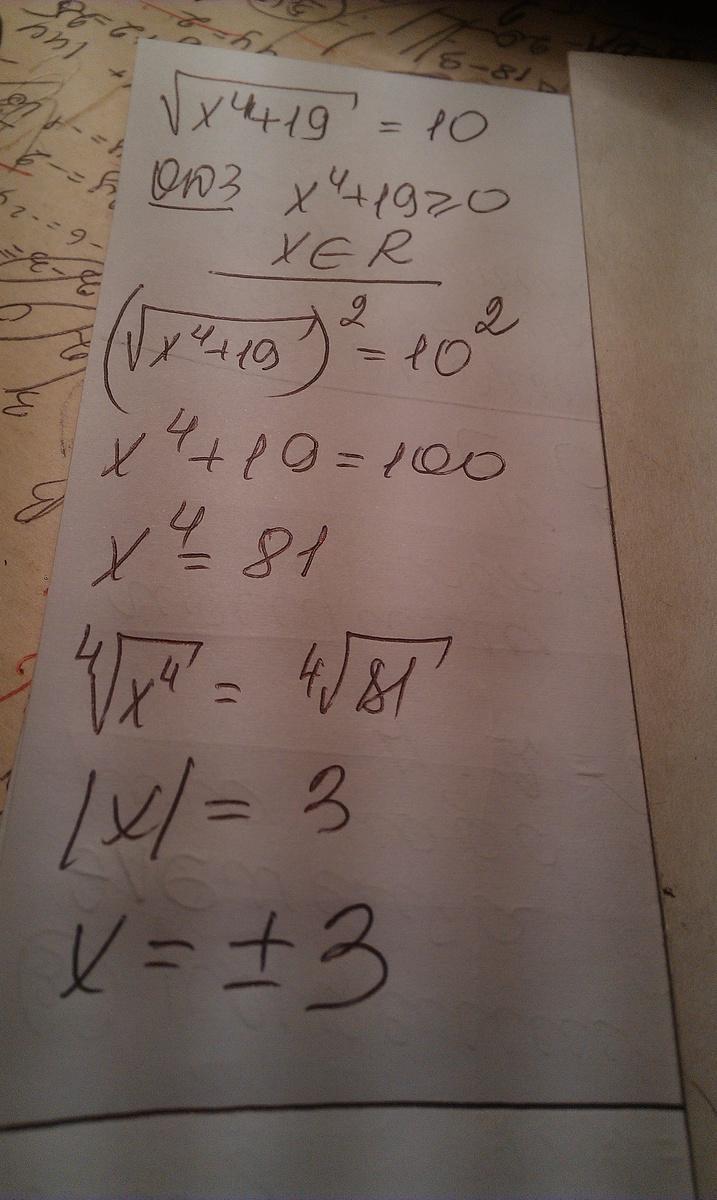 √(x⁴+19) = 10
ОДЗ x⁴+19≥0
x∈R
(√(x⁴+19))² = 10²
x⁴+19=100
x⁴=81
⁴√(x⁴) = ⁴√81
|x| = 3
x = ±3